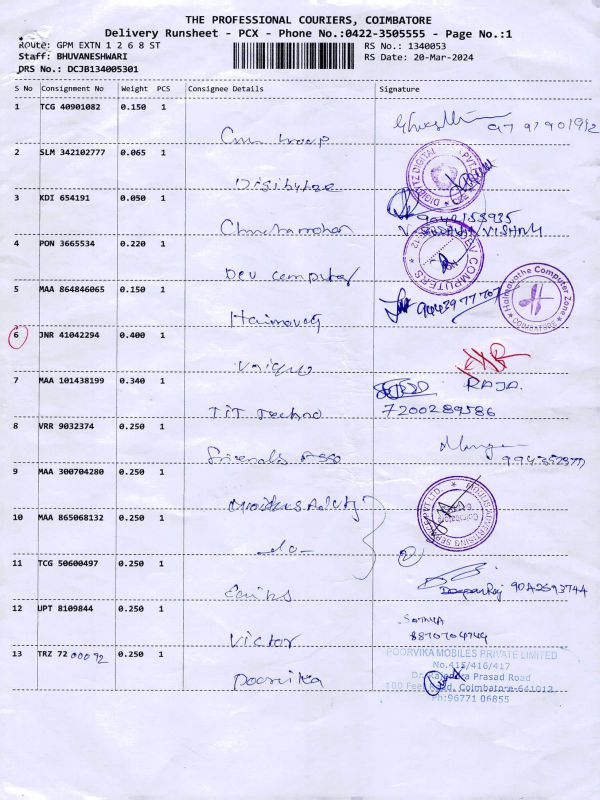 THE PROFESSIONAL COURIERS, COIMBATORE
Delivery Runsheet - PCX - Phone No.:0422-3505555 - Page No.:1
Route: GPM EXTN 1 2 6 8 ST
Staff: BHUVANESHWARI
DRS No.: DCJB134005301
RS No.: 1340053
RS Date: 20-Mar-2024
S No Consignment No Weight PCS Consignee Details Signature
1 TCG 40901082 0.150 1
2 SLM 342102777 0.065 1 Digibytze
DIGIBYTZ DIGITAL PVT
3 KDI 654191 0.050 1
4 PON 3665534 0.220 1 Dev Computer
DEV COMPUTERS
5 MAA 864846065 0.150 1 Haimavathi
Haimavathe Computer Zone
COIMBATORE
6 JNR 41042294 0.400 1 Unique
7 MAA 101438199 0.340 1 TIT Techno RAJA.
7200289586
8 VRR 9032374 0.250 1 Friends Asso
9 MAA 300704280 0.250 1
10 MAA 865068132 0.250 1 -do-
11 TCG 50600497 0.250 1
12 UPT 8109844 0.250 1 Victor
13 TRZ 72 00092 0.250 1 Poorvika
POORVIKA MOBILES PRIVATE LIMITED
No.415/416/417
Dr. Rajendra Prasad Road
100 Feet Road, Coimbatore-641012
Ph:96771 06855